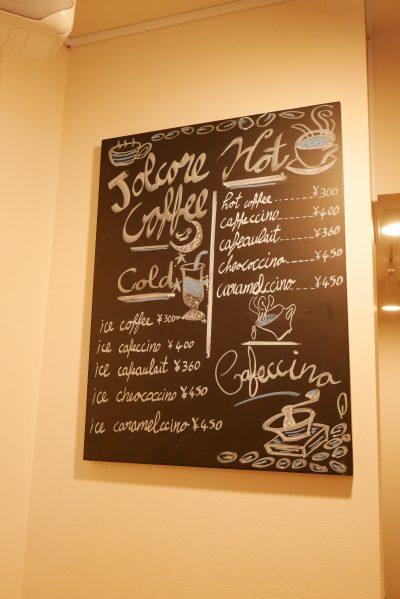 Jolcore
Coffee
Cold
ice coffee ¥300
ice cafeccino ¥400
ice cafeaulait ¥360
ice cheococcino ¥450
ice caramelccino ¥450
Hot
hot coffee ¥300
caffeccino ¥400
cafeaulait ¥360
cheococcino ¥450
caramelccino ¥450
Cafeccino